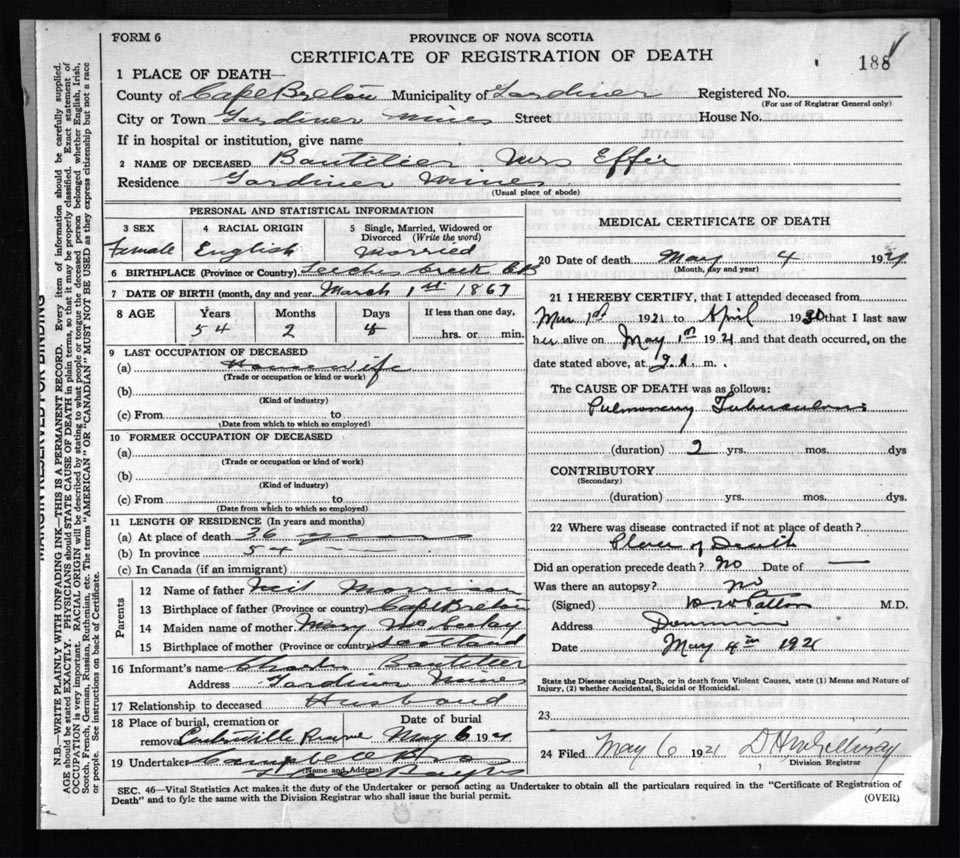 FORM 6
PROVINCE OF NOVA SCOTIA
CERTIFICATE OF REGISTRATION OF DEATH
188
1 PLACE OF DEATH—
County of Cape Breton Municipality of Gardiner Registered No.
(For use of Registrar General only)
City or Town Gardiner Mines Street House No.
If in hospital or institution, give name
2 NAME OF DECEASED Boutilier Mrs Effie
Residence Gardiner Mines
(Usual place of abode)
PERSONAL AND STATISTICAL INFORMATION
3 SEX 4 RACIAL ORIGIN 5 Single, Married, Widowed or Divorced (Write the word)
Female English Married
6 BIRTHPLACE (Province or Country) Leeches Creek CB
7 DATE OF BIRTH (month, day and year) March 1st 1867
8 AGE Years Months Days If less than one day,
54 2 hrs. or min.
9 LAST OCCUPATION OF DECEASED
(a) Housewife
(Trade or occupation or kind of work)
(b)
(Kind of industry)
(c) From to
(Date from which to which so employed)
10 FORMER OCCUPATION OF DECEASED
(a)
(Trade or occupation or kind of work)
(b)
(Kind of industry)
(c) From to
(Date from which to which so employed)
11 LENGTH OF RESIDENCE (In years and months)
(a) At place of death 36 years
(b) In province 54
(c) In Canada (if an immigrant)
Parents
12 Name of father Neil Morrison
13 Birthplace of father (Province or country) Cape Breton
14 Maiden name of mother Mary
15 Birthplace of mother (Province or country) Scotland
16 Informant's name Charles Boutilier
Address Gardiner Mines
17 Relationship to deceased Husband
18 Place of burial, cremation or Date of burial
removal Reserve May 6 1921
19 Undertaker Bros
(Name and Address)
MEDICAL CERTIFICATE OF DEATH
20 Date of death May 4 1921
(Month, day and year)
21 I HEREBY CERTIFY, that I attended deceased from
1st 1921 to April 1930 that I last saw
her alive on May 1st 1921 and that death occurred, on the
date stated above, at m.
The CAUSE OF DEATH was as follows:
Pulmonary Tuberculosis
(duration) 2 yrs. mos. dys
CONTRIBUTORY
(Secondary)
(duration) yrs. mos. dys.
22 Where was disease contracted if not at place of death?
Place of Death
Did an operation precede death? No Date of —
Was there an autopsy? No
(Signed) Patton M.D.
Address Dominion
Date May 4th 1921
State the Disease causing Death, or in death from Violent Causes, state (1) Means and Nature of
Injury, (2) whether Accidental, Suicidal or Homicidal.
23
24 Filed May 6 1921 D H McGillivray
Division Registrar
SEC. 46—Vital Statistics Act makes it the duty of the Undertaker or person acting as Undertaker to obtain all the particulars required in the "Certificate of Registration of
Death" and to fyle the same with the Division Registrar who shall issue the burial permit.
(OVER)
MARGIN RESERVED FOR BINDING
N.B.—WRITE PLAINLY WITH UNFADING INK—THIS IS A PERMANENT RECORD. Every item of information should be carefully supplied.
AGE should be stated EXACTLY. PHYSICIANS should STATE CAUSE OF DEATH in plain terms, so that it may be properly classified. Exact statement of
OCCUPATION is very important. RACIAL ORIGIN will be described by stating to what people or tongue the deceased person belonged whether English, Irish,
Scotch, French, German, Russian, Ruthenian, etc. The terms "AMERICAN" OR "CANADIAN" MUST NOT BE USED as they express citizenship but not a race
or people. See instructions on back of Certificate.